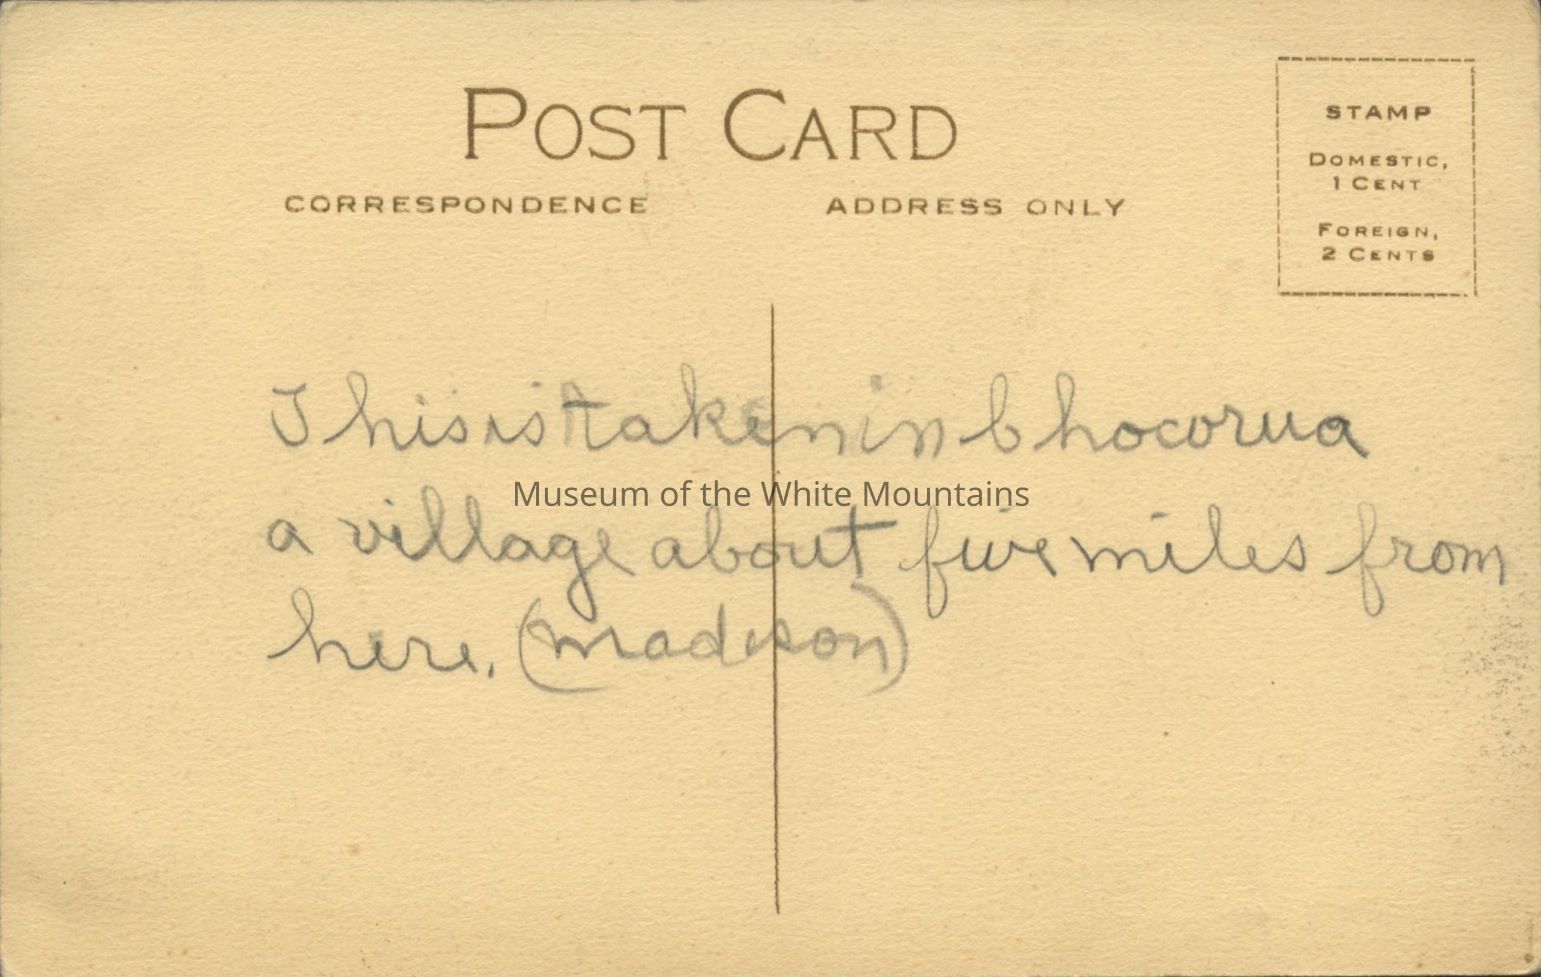 POST CARD
CORRESPONDENCE
ADDRESS ONLY
STAMP
DOMESTIC,
1 CENT
FOREIGN,
2 CENTS
This is taken in Chocorua
Museum of the White Mountains
a village about five miles from
here. (Madison)